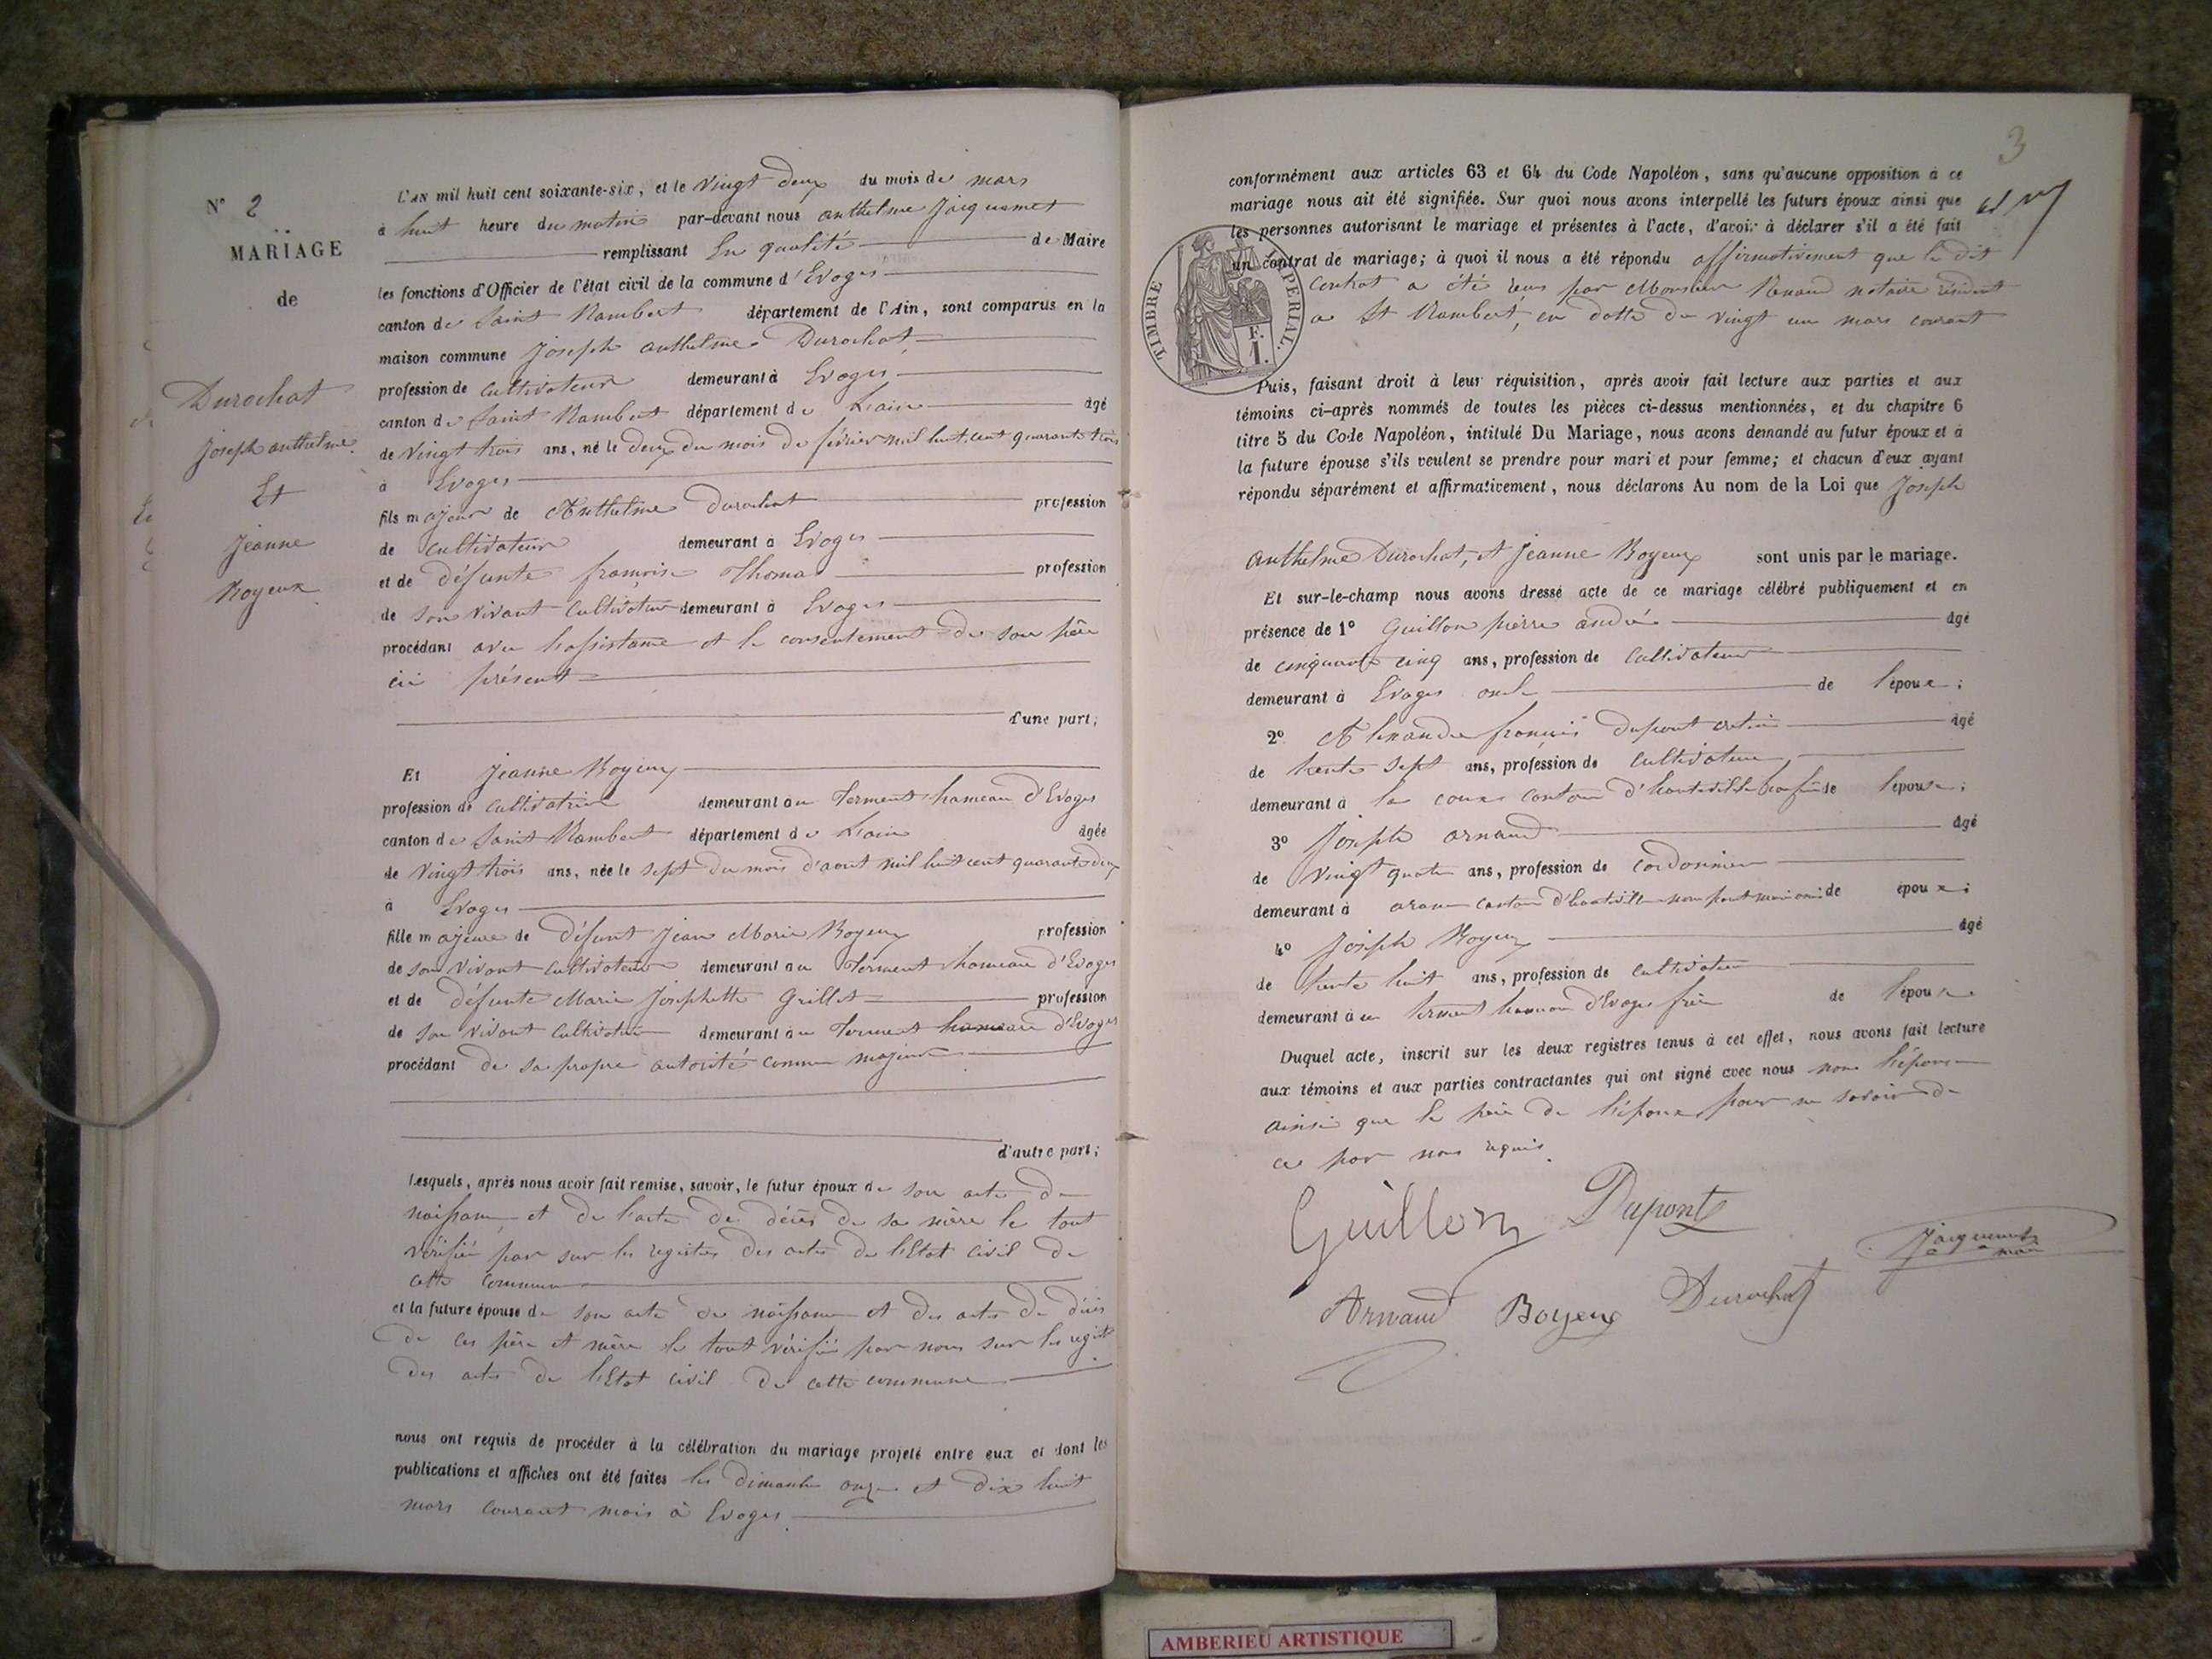 N° 2
MARIAGE
de
Durochat
Joseph anthelme
Et
Jeanne
Royeux
L'AN mil huit cent soixante-six, et le vingt deux du mois de mars
à huit heure du matin par-devant nous anthelme Jacquemet
remplissant En qualité de Maire
les fonctions d'Officier de l'état civil de la commune d'Evoges
canton de Saint Rambert département de l'Ain, sont comparus en la
maison commune Joseph anthelme Durochat
profession de cultivateur demeurant à Evoges
canton de Saint Rambert département de L'ain âgé
de vingt trois ans, né le deux du mois de février mil huit cent quarante trois
à Evoges
fils majeur de Anthelme Durochat profession
de cultivateur demeurant à Evoges
et de défunte françoise Thomas profession
de son vivant cultivateur demeurant à Evoges
procédant avec l'assistance et le consentement de son père
ici présent
d'une part;
Et Jeanne Royeux
profession de cultivatrice demeurant au Terment hameau d'Evoges
canton de Saint Rambert département de L'ain âgée
de vingt trois ans, née le sept du mois d'aout mil huit cent quarante deux
à Evoges
fille majeure de défunt Jean Marie Royeux profession
de son vivant cultivateur demeurant au Terment hameau d'Evoges
et de défunte Marie Josephette Grillet profession
de son vivant cultivateur demeurant au Terment hameau d'Evoges
procédant de sa propre autorité comme majeure
d'autre part;
Lesquels, après nous avoir fait remise, savoir, le futur époux de son acte de
naissance et de l'acte de décès de sa mère le tout
vérifié par sur les registres des actes de l'Etat civil de
cette commune
et la future épouse de son acte de naissance et des actes de décès
de ces père et mère le tout vérifié par nous sur les regist
des actes de l'Etat civil de cette commune
nous ont requis de procéder à la célébration du mariage projeté entre eux et dont les
publications et affiches ont été faites les dimanche onze et dix huit
mars courant mois à Evoges
3
conformément aux articles 63 et 64 du Code Napoléon, sans qu'aucune opposition à ce
mariage nous ait été signifiée. Sur quoi nous avons interpellé les futurs époux ainsi que
les personnes autorisant le mariage et présentes à l'acte, d'avoir à déclarer s'il a été fait
un contrat de mariage; à quoi il nous a été répondu affirmativement que le dit
contrat a été reçu par Monsieur Renaud notaire résident
a St Rambert, en datte du vingt un mars courant
TIMBRE IMPERIAL
F.
1.
Puis, faisant droit à leur réquisition, après avoir fait lecture aux parties et aux
témoins ci-après nommés de toutes les pièces ci-dessus mentionnées, et du chapitre 6
titre 5 du Code Napoléon, intitulé Du Mariage, nous avons demandé au futur époux et à
la future épouse s'ils veulent se prendre pour mari et pour femme; et chacun d'eux ayant
répondu séparément et affirmativement, nous déclarons Au nom de la Loi que Joseph
Anthelme Durochat, et Jeanne Royeux sont unis par le mariage.
Et sur-le-champ nous avons dressé acte de ce mariage célébré publiquement et en
présence de 1° Guillon pierre andré âgé
de cinquante cinq ans, profession de cultivateur
demeurant à Evoges oncle de l'époux;
2° Alexandre françois dupont cretin âgé
de trente sept ans, profession de cultivateur
demeurant à la coux canton d'hauteville de l'épouse;
3° Joseph arnaud âgé
de vingt quatre ans, profession de cordonnier
demeurant à aran canton d'hauteville non parent mais ami de époux;
4° Joseph Royeux âgé
de trente huit ans, profession de cultivateur
demeurant à au terment hameau d'Evoges frère de l'épouse
Duquel acte, inscrit sur les deux registres tenus à cet effet, nous avons fait lecture
aux témoins et aux parties contractantes qui ont signé avec nous non l'épouse
ainsi que le père de l'époux pour ne savoir de
ce par nous requis.
Guillon Dupont
Jacquemet
maire
Arnaud Boyeux Durochat
AMBERIEU ARTISTIQUE